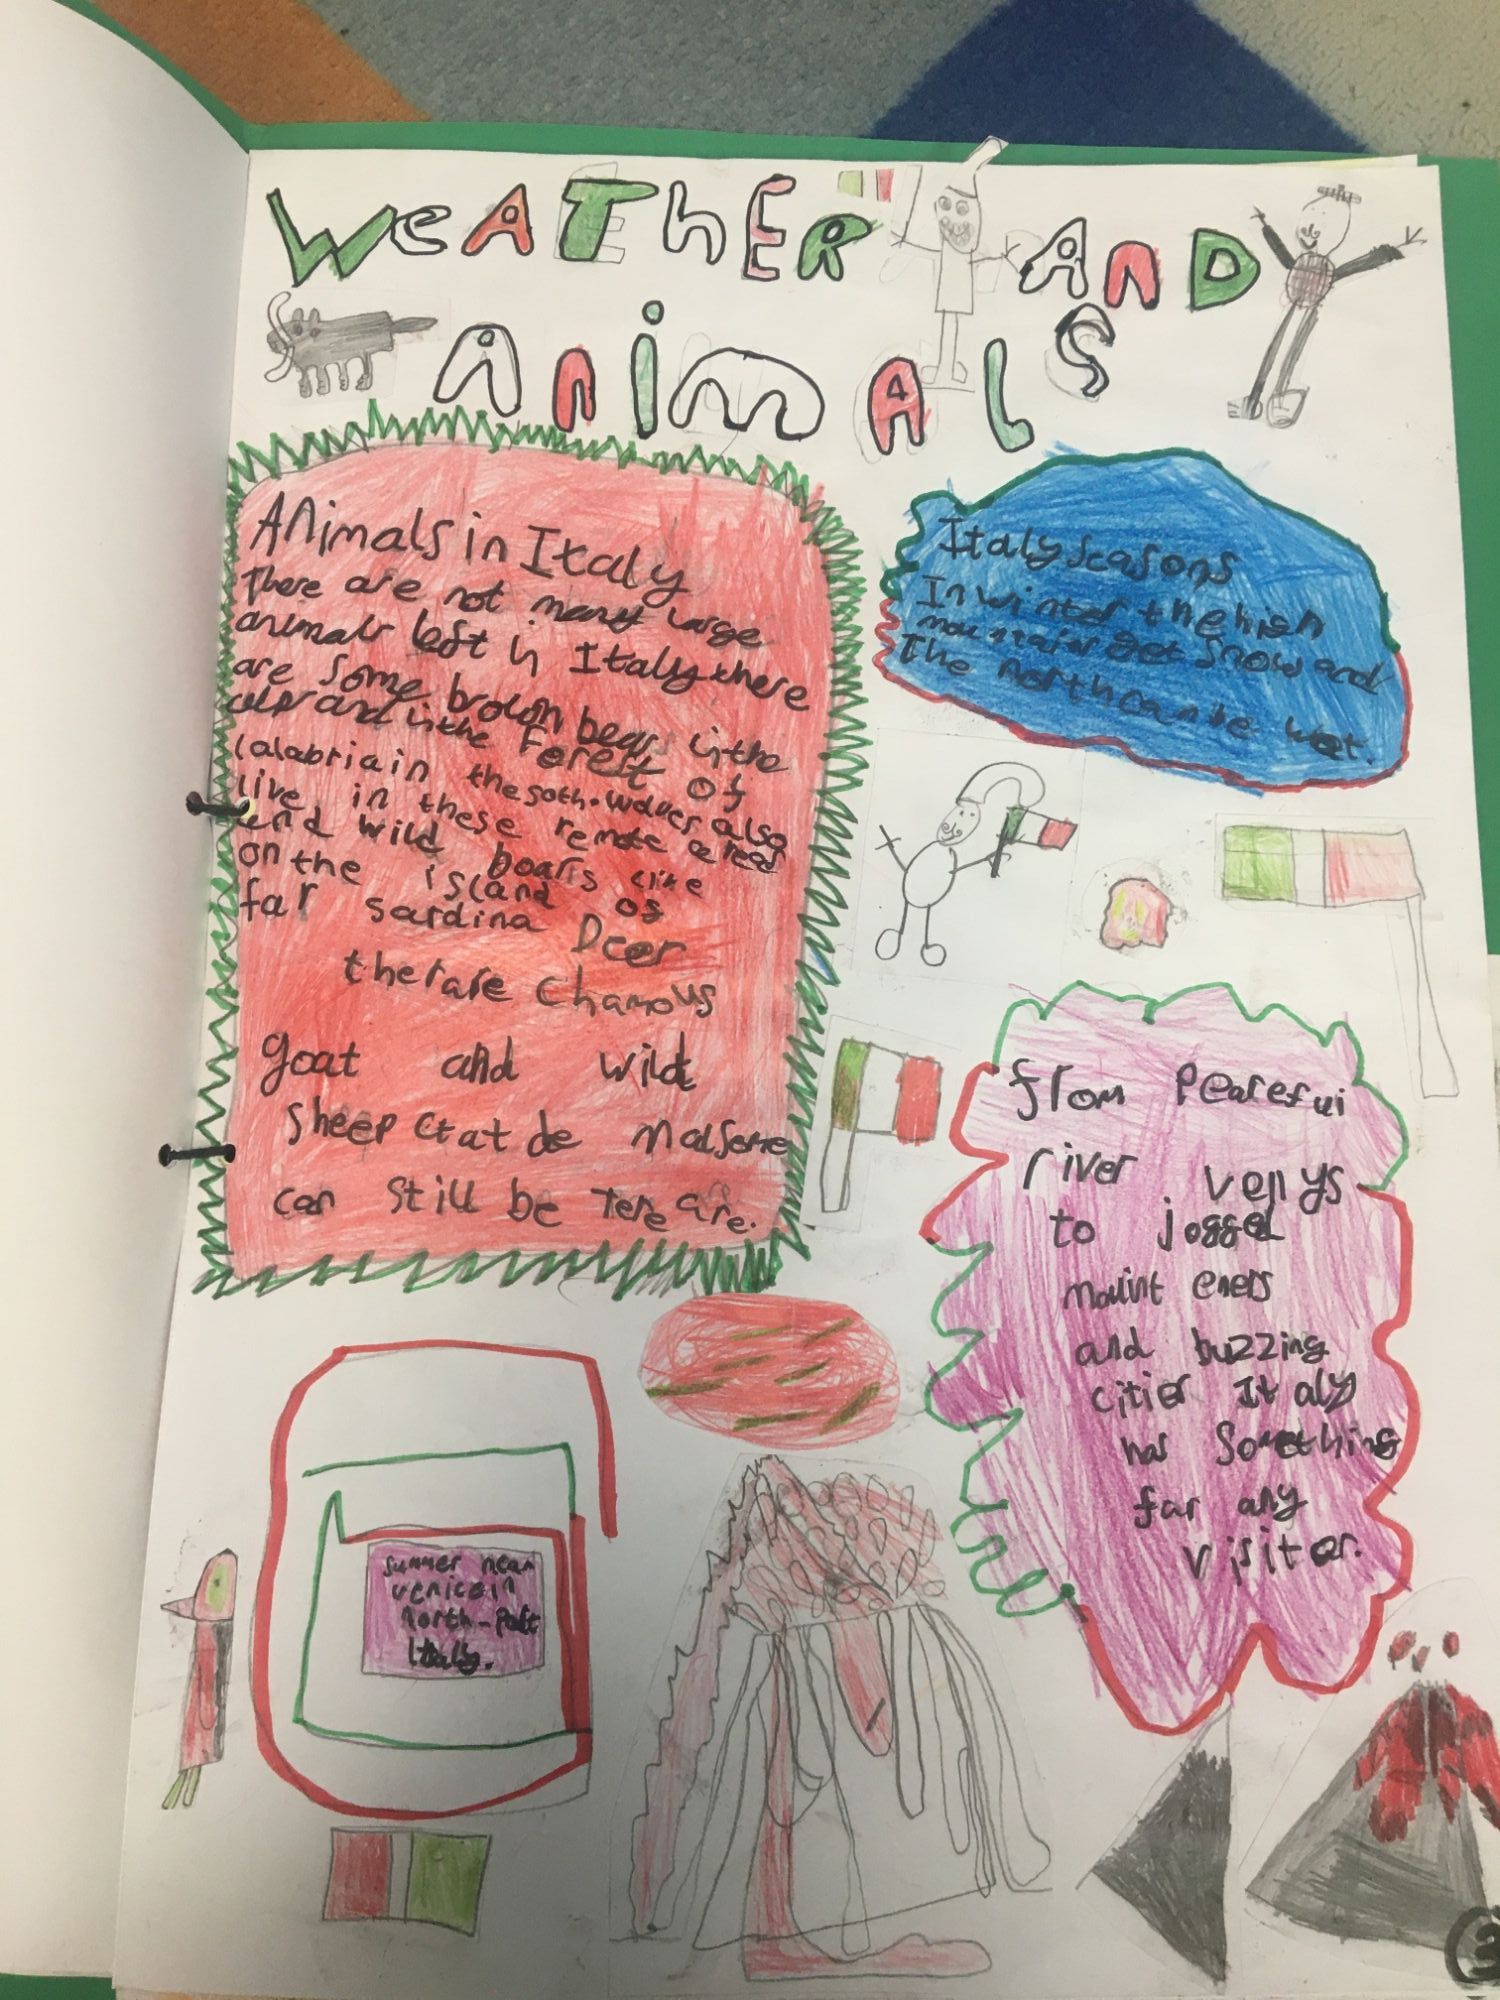 WeATHER AND
AnimALS
Animals in Italy
There are not many large
animals left in Italy there
are some brown bears in the
alps and in the Forest of
Calabria in the soth. wolves also
live in these remote areas
and wild boars like
on the island of
far sardina Deer
therare Chamous
goat and wild
sheep
can still be Tere are.
Italy seasons
In winter the high
mountains get snow and
The north can be wet.
from Peacefui
river Venys
to jogged
mount eners
and buzzing
cities Italy
has Something
far any
visiter.
summer near
venice in
north-
Italy.
3